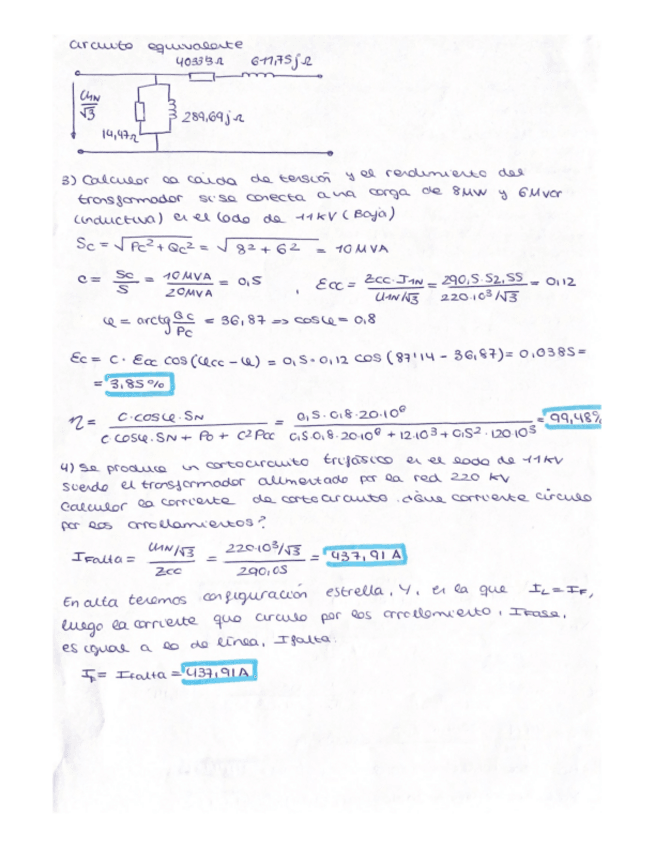 circuito equivalente
40333Ω 611,75jΩ
U1N/√3
289,69jΩ
14,47Ω
3) Calcular la caída de tensión y el rendimiento del
transformador si se conecta a una carga de 8MW y 6Mvar
(inductiva) en el lado de 11kV (Baja)
Sc = √Pc²+Qc² = √8²+6² = 10 MVA
c = Sc/S = 10 MVA/20MVA = 0,5 , εcc = Zcc·I1N/U1N/√3 = 290,5·52,55/220·10³/√3 = 0,12
φ = arctg Qc/Pc = 36,87 => cosφ = 0,8
εc = c · εcc cos(φcc - φ) = 0,5·0,12 cos (87'14 - 36,87) = 0,0385 =
= 3,85%
η = c·cosφ·SN/c cosφ·SN + P0 + c²Pcc = 0,5·0,8·20·10⁶/0,5·0,8·20·10⁶ + 12·10³ + 0,5²·120·10³ = 99,48%
4) Se produce un cortocircuito trifásico en el lado de 11kV
siendo el transformador alimentado por la red 220 kV
Calcular la corriente de cortocircuito. ¿Qué corriente circula
por los arrollamientos?
IFalta = U1N/√3/Zcc = 220·10³/√3/290,05 = 437,91 A
En alta tenemos configuración estrella, Y, en la que IL = IF,
luego la corriente que circula por los arrollamiento, IFase,
es igual a la de línea, Ifalta.
IF = Ifalta = 437,91 A